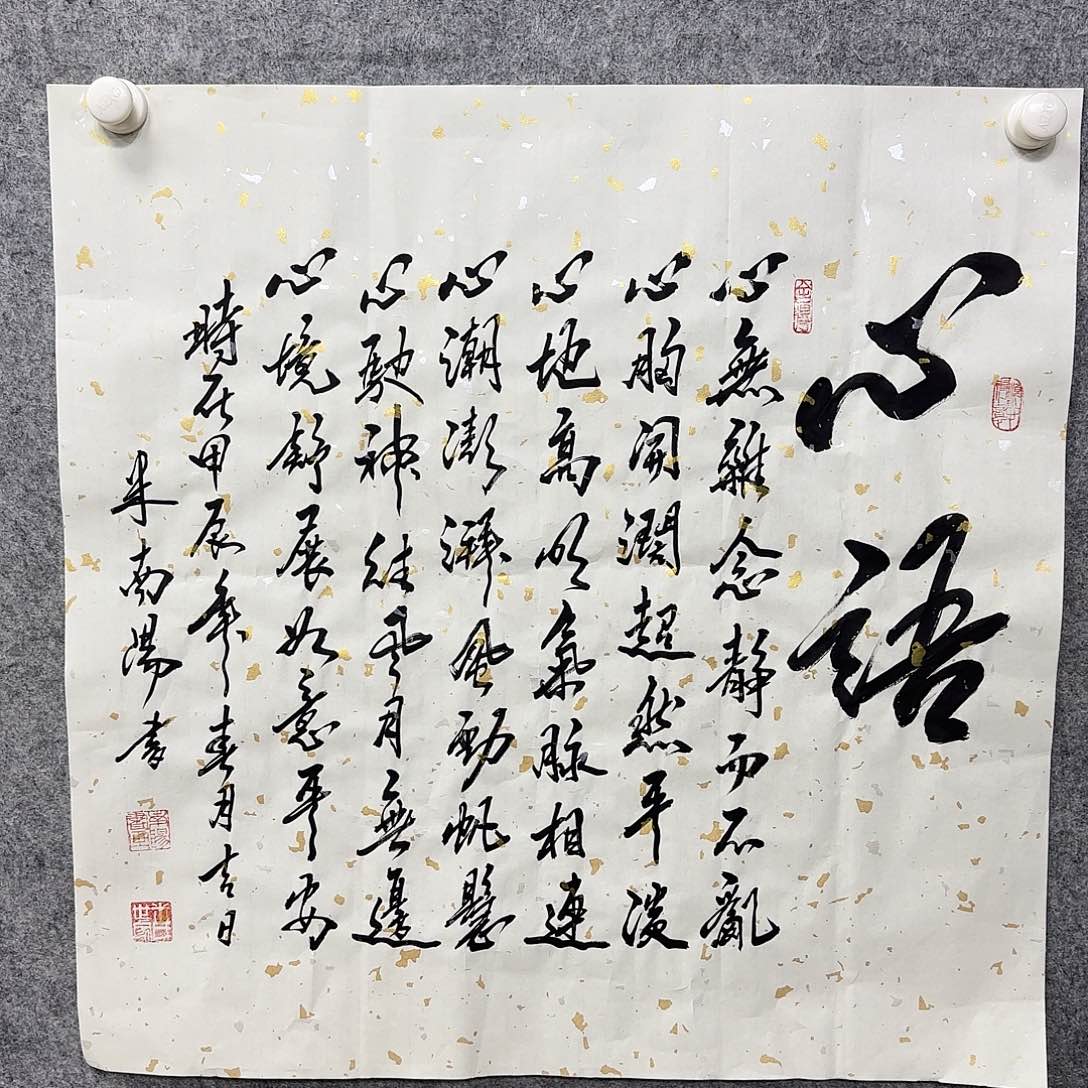 心語
心無雜念靜而不亂
心胸開濶超然平淡
心地高明氣脉相連
心潮澎湃風勁帆懸
心馳神往風月無邊
心境舒展如意平安
時在甲辰年春月吉日
米南陽書